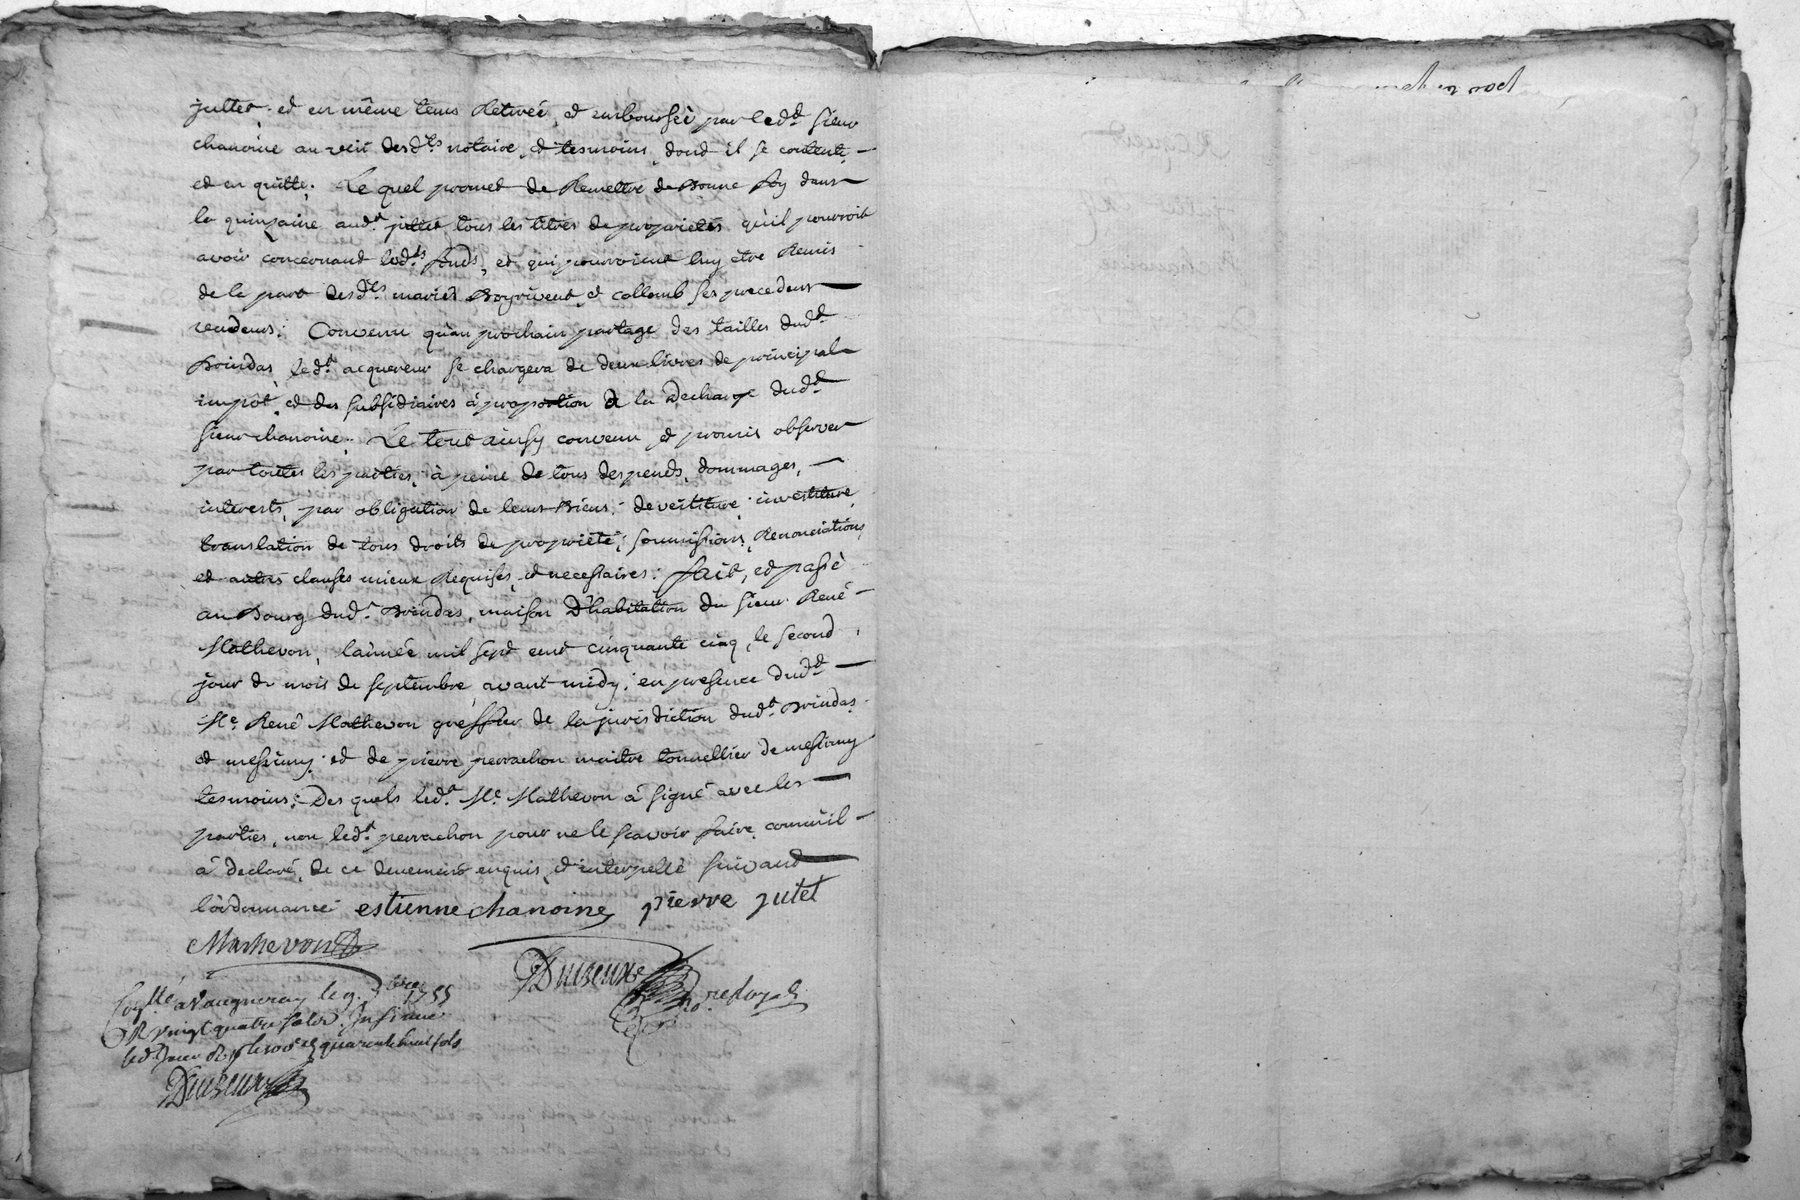 juttet, et en même tems Retirée, et emboursée par led.t sieur
chanoine au veü desd.ts notaire, et tesmoins, dont il se contente
et en quitte. Le quel promet de Remettre de Bonne foy dans
la quinzaine aud.t juttet tous les titres de proprietés qu'il pourroit
avoir concernant lesd.ts fonds, et qui pourroient luy être Remis
de la part desd.ts mariés Boyrivent, et collomb ses precedents
vendeurs: Convenu qu'au prochain partage des tailles dud.t
Brindas, led.t acquereur se chargera de deux livres de principal
impôt, et des subsidiaires à proportion à la Decharge dud.t
sieur chanoine. Le tout ainsy convenu et promis observer
par toutes les parties, à peine de tous despends, dommages,
interests, par obligation de leurs Biens, devêtiture, investiture,
translation de tous droits de propriété, soumissions, Renonciations
et autres clauses mieux Requises, et necessaires: fait, et passé
au Bourg dud.t Brindas, maison D'habitation du sieur René
Mathevon, l'année mil sept cent cinquante cinq, le second
jour du mois de septembre avant midy, en presence dud.t
M.e René Mathevon greffier de la jurisdiction dud.t Brindas
et messimy, et de pierre perrachon maitre tonnellier de messimy
tesmoins: Des quels led.t M.e Mathevon à signé avec les
parties, non led.t perrachon pour ne le scavoir faire, comm'il
à declaré, de ce deuement enquis, et interpellé suivant
l'ordonnance estienne chanoine pierre jutet
Mathevon
no.re royal
Con.llé à Vaugneray le 9. 7bre 1755
R vingt quatre sols
quarante huit sols